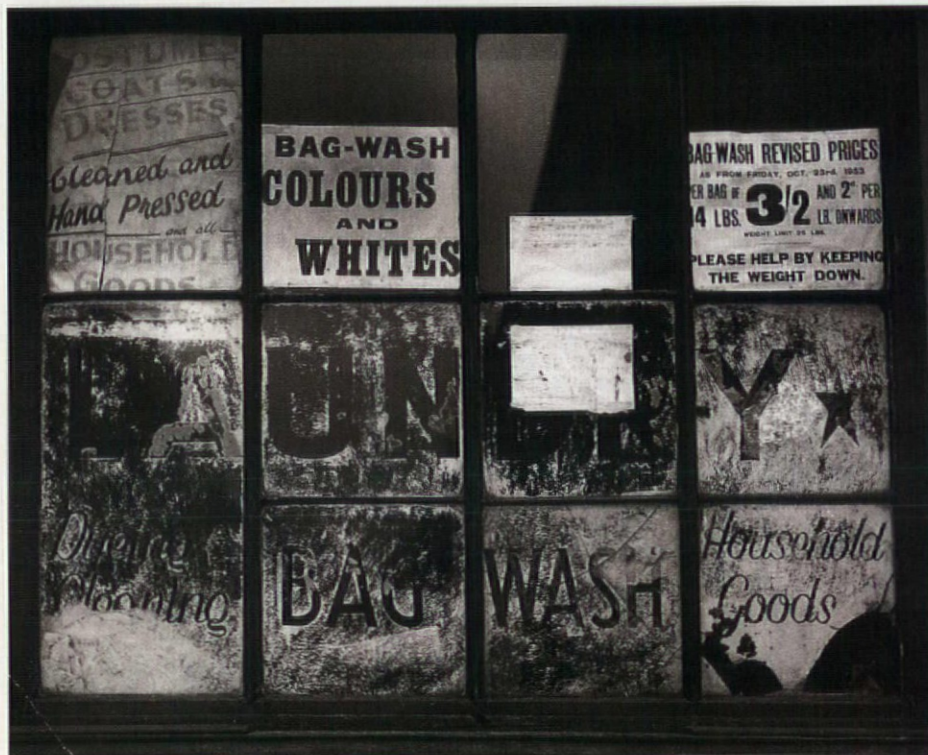 COSTUMES
COATS
DRESSES
Cleaned and
Hand Pressed
and all
HOUSEHOLD
GOODS
BAG-WASH
COLOURS
AND
WHITES
BAG WASH REVISED PRICES
AS FROM FRIDAY, OCT. 23rd. 1953
PER BAG OF 14 LBS. 3/2 AND 2ᴰ PER LB. ONWARDS
WEIGHT LIMIT 25 LBS.
PLEASE HELP BY KEEPING
THE WEIGHT DOWN.
LAUNDRY ★
Dyeing
Cleaning
BAG WASH
Household
Goods